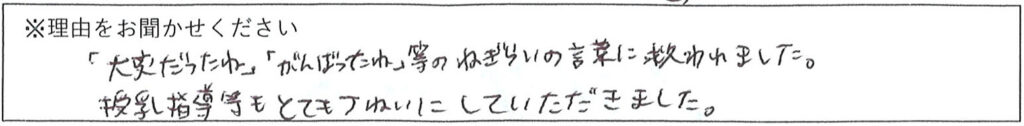 ※理由をお聞かせください
「大変だったね」「がんばったね」等のねぎらいの言葉に救われました。
授乳指導等もとてもていねいにしていただきました。